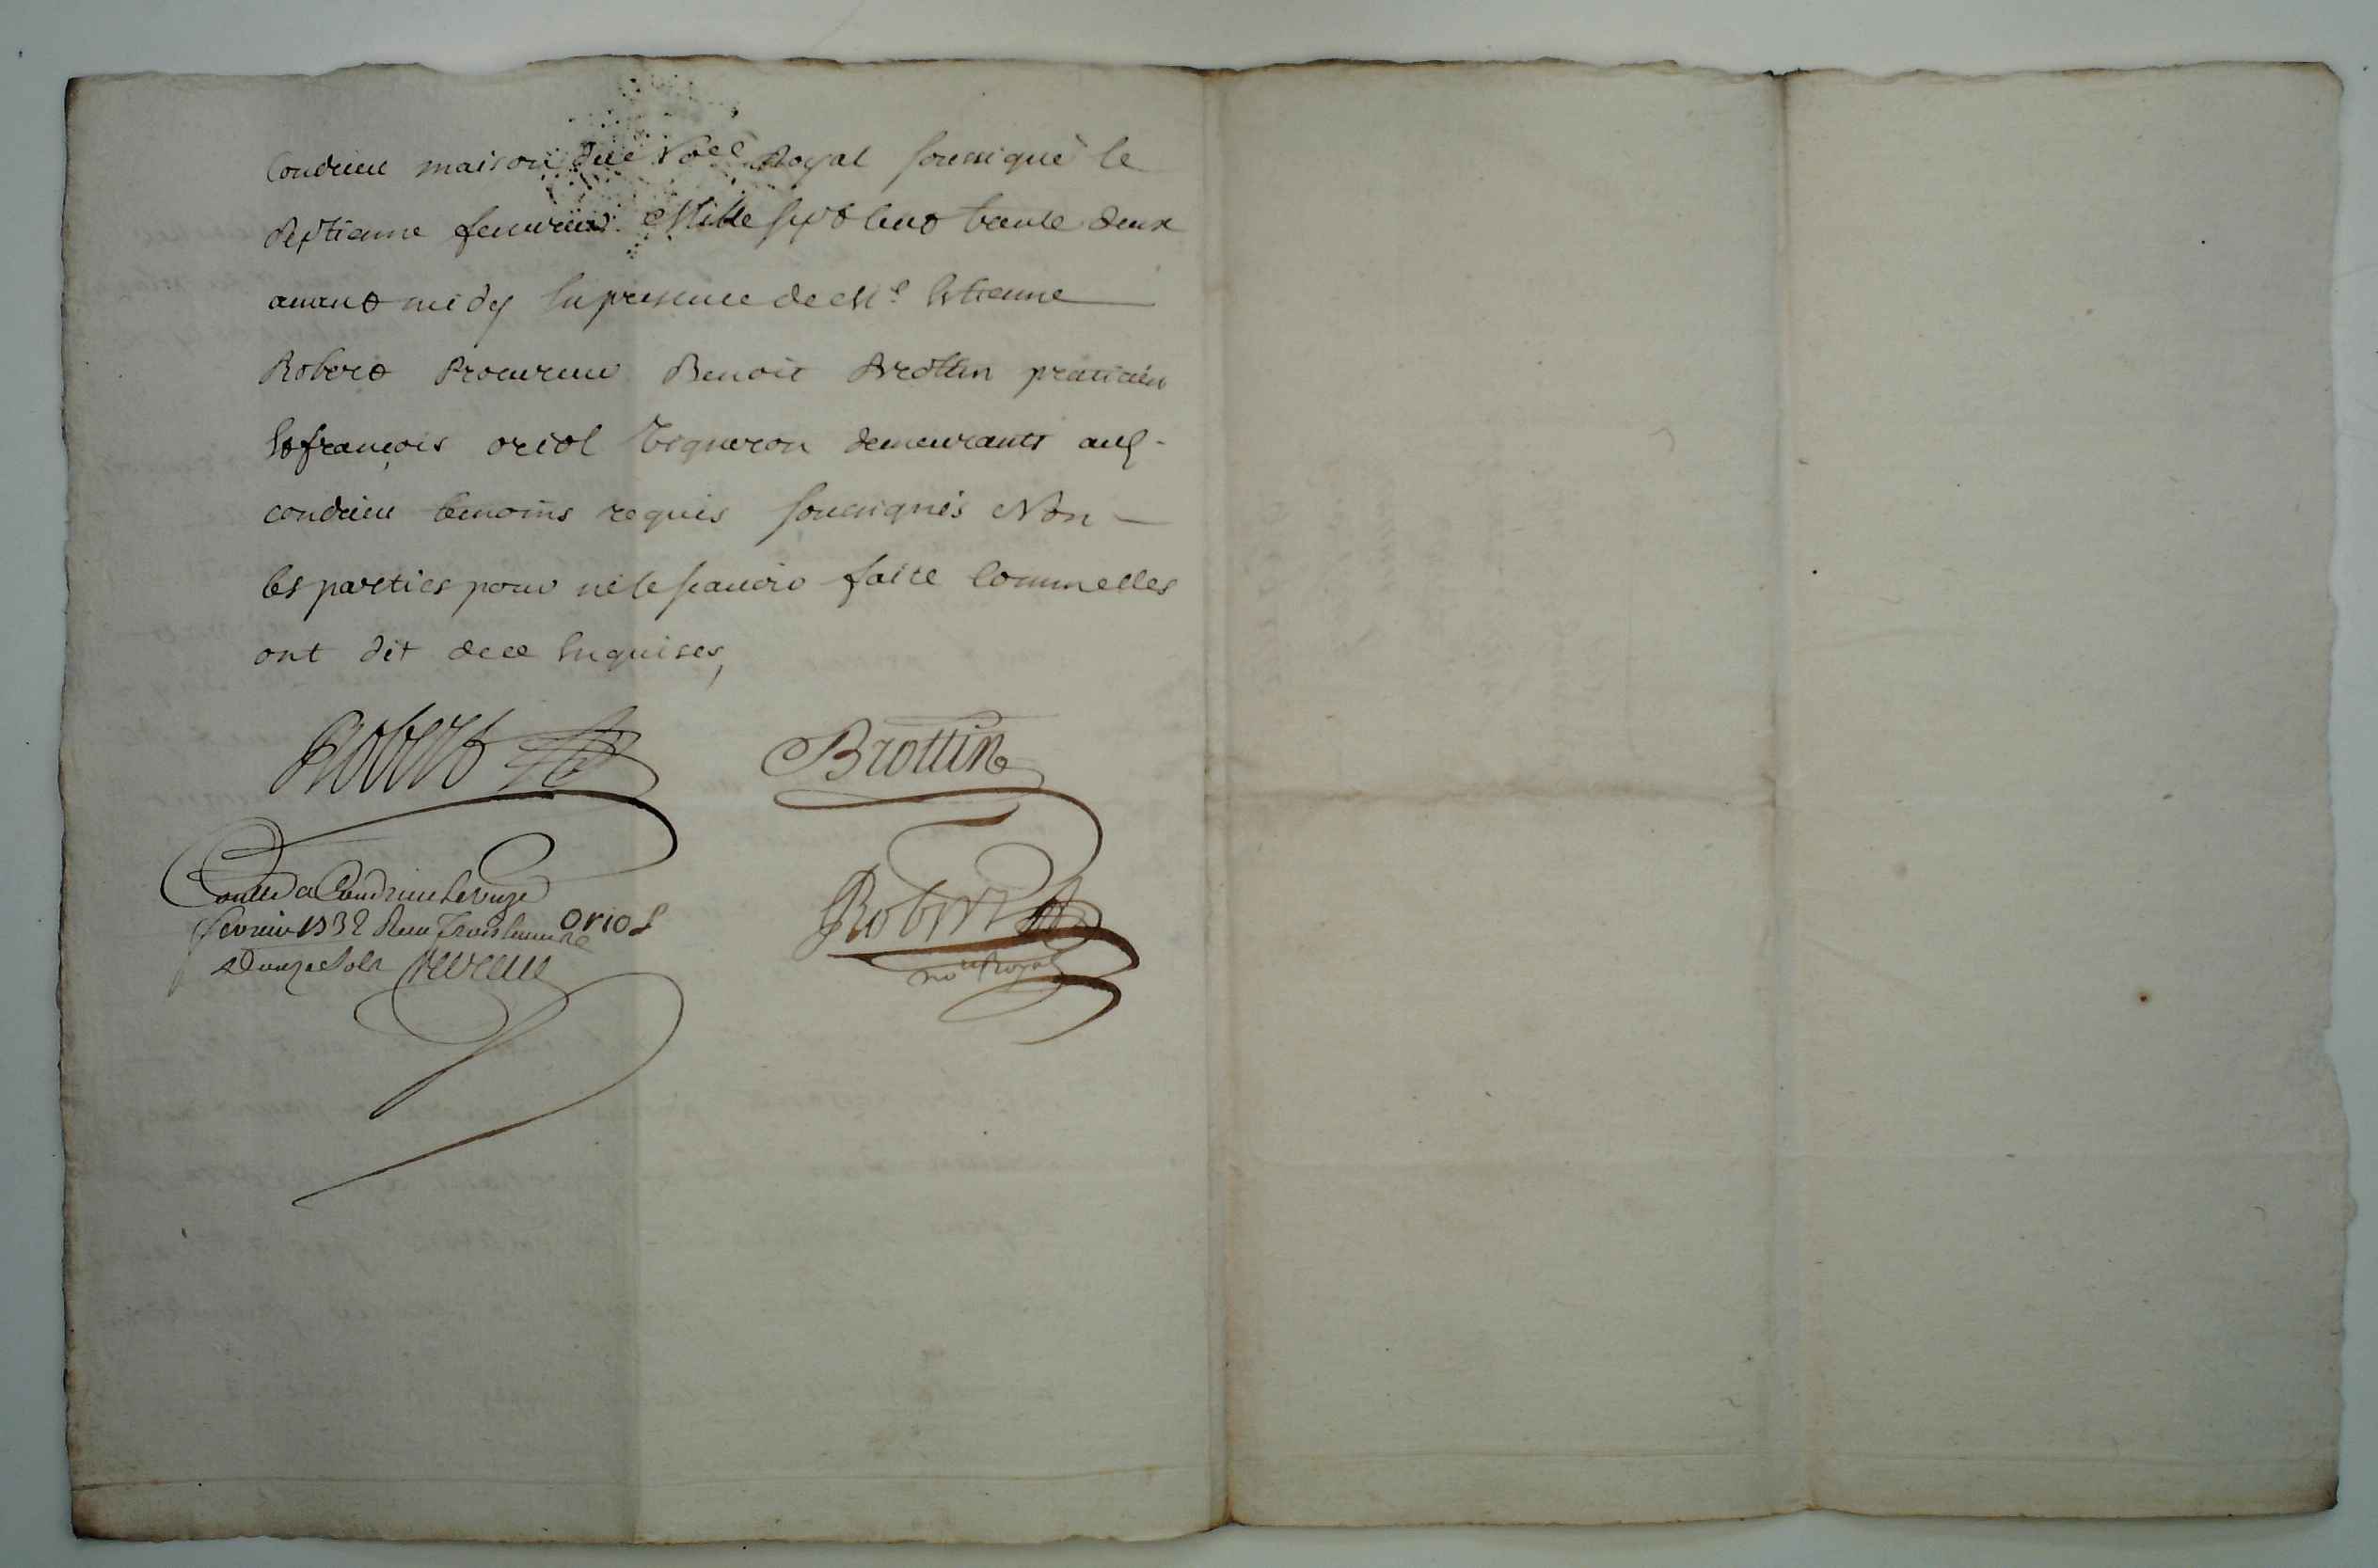 Condrieu maison du no.re Royal soussigné le
septieme feuvrier Mille sept cent trente deux
auant midy En presence de M.e Estienne
Robert Procureur Benoit Brottin praticien
Et françois oriol Vigneron demeurants aud.
condrieu temoins requis soussignés Non
les parties pour ne le scauoir faire comm'elles
ont dit de ce Enquises,
Robert
Brottin
Controllé a Condrieu le
fevrier 1732 Reçu
douze sols
oriol
Robert
no.re Royal